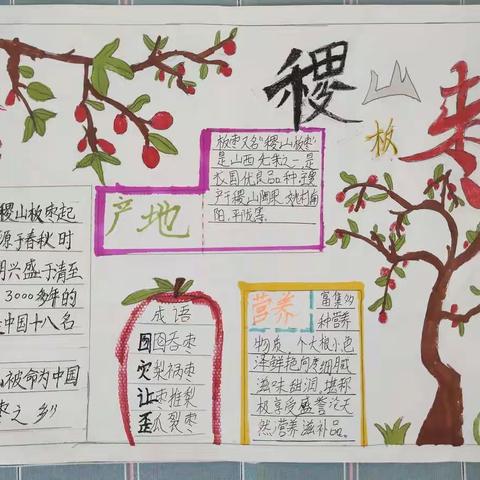 稷山板枣
产地
板枣又名"稷山板枣"
是山西九枣之一,是
我国优良品种,主要
产于稷山陶梁、姚村
阳、平陇等。
稷山板枣起
源于春秋时
明兴盛于清至
3000多年的
中国十八名
被命为中国
枣之乡
成语
囫囵吞枣
灾梨祸枣
让枣推梨
歪瓜裂枣
营养
富集的
种营养
物质,个大核小色
泽鲜艳肉质细腻
滋味甜润堪称
极享受盛誉论天
然营养滋补品。